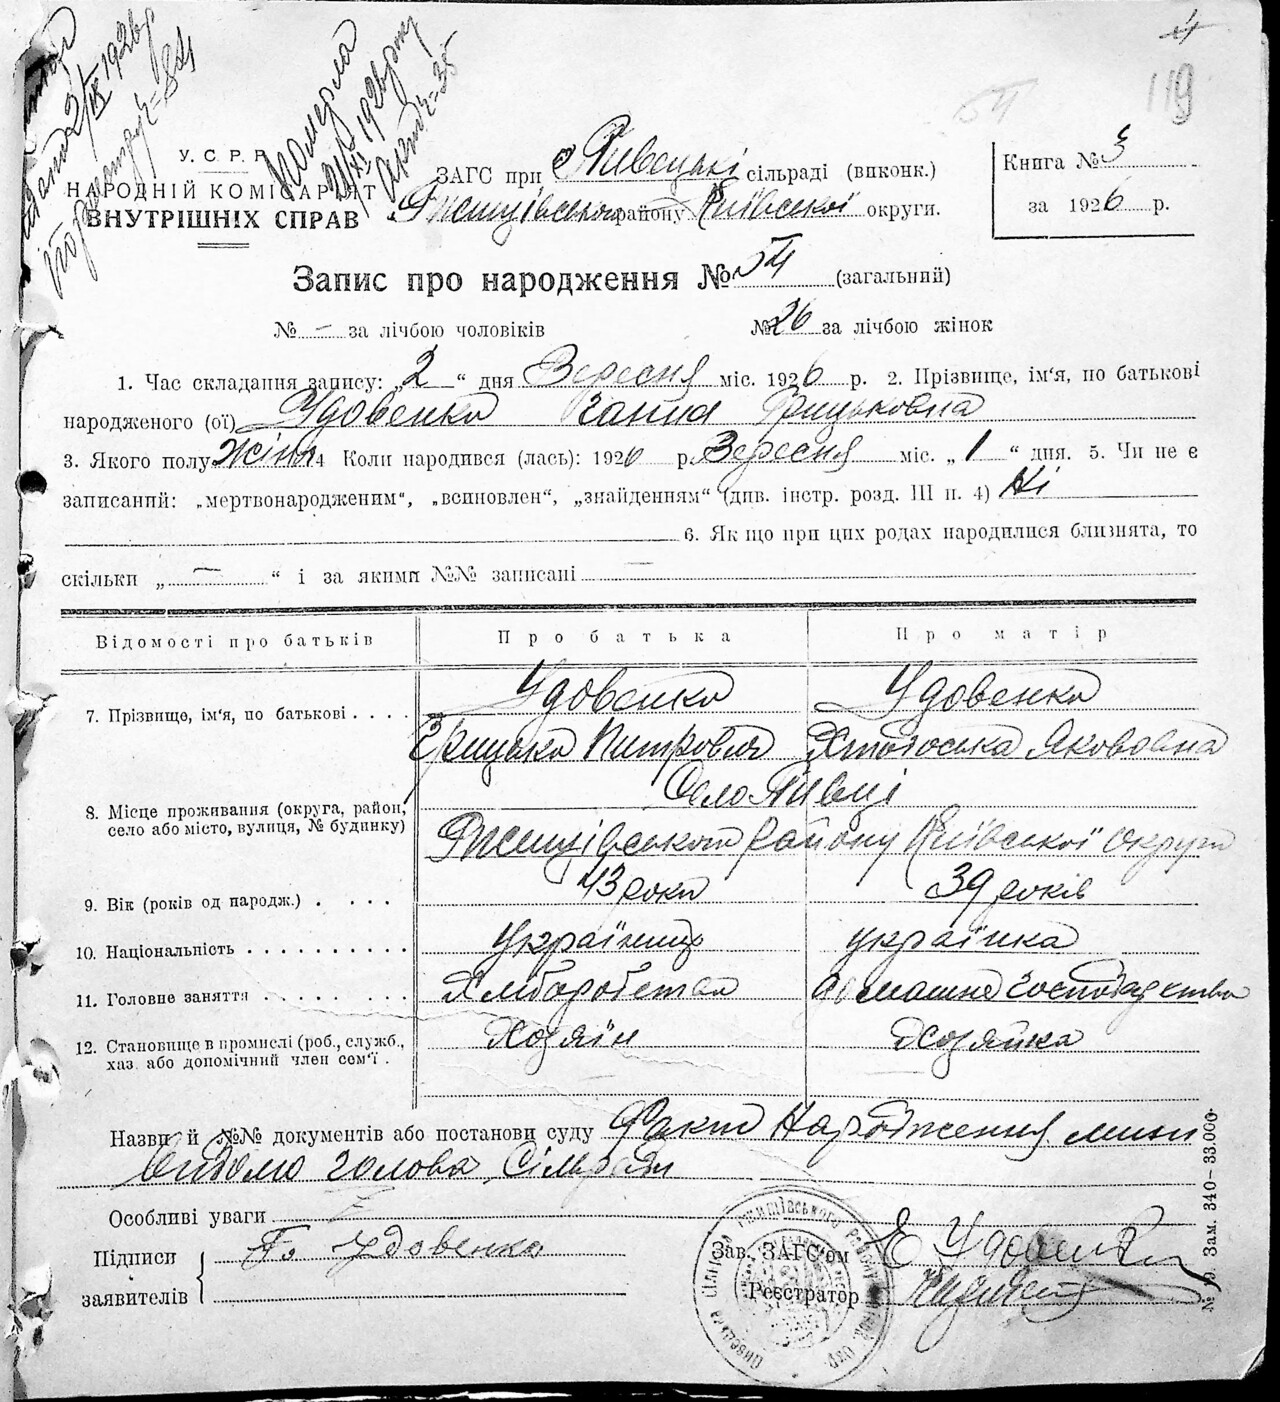 4
119
54
2/IX 1926 р
=84
Померла
1926 року
=35
У. С. Р. Р.
НАРОДНІЙ КОМІСАРІЯТ
ВНУТРІШНІХ СПРАВ
ЗАГС при Пивецькі сільраді (виконк.)
Ржищівського району Київської округи.
Книга № 3
за 1926 р.
Запис про народження № 54 (загальний)
№ – за лічбою чоловіків № 26 за лічбою жінок
1. Час складання запису: „2“ дня Вересня міс. 1926 р. 2. Прізвище, ім'я, по батькові
народженого (ої) Удовенко Ганна Грицьковна
3. Якого полу Жін. 4 Коли народився (лась): 1926 р. Вересня міс. „1“ дня. 5. Чи не є
записаний: „мертвонародженим“, „всиновлен“, „знайденням“ (див. інстр. розд. III п. 4) Ні
6. Як що при цих родах народилися близнята, то
скільки „ — “ і за якими №№ записані —
Відомості про батьків Про батька Про матір
7. Прізвище, ім'я, по батькові . . . . Удовенко Удовенко
Грицько Питрович Якововна
Село Півці
8. Місце проживання (округа, район,
село або місто, вулиця, № будинку)
Ржищівського Району Київської Округи
9. Вік (років од народж.) . . . . 43 роки 39 років
10. Національність . . . . . . . . . . українець українка
11. Головне заняття . . . . . . . . . Хліборобство домашнє господарство
12. Становище в промислі (роб., служб., Хозяїн Хозяйка
хаз. або допомічний член сем'ї .
Назви й №№ документів або постанови суду Факт Народження мині
відомо голова Сільради
Особливі уваги
Підписи Удовенко Зав. ЗАГС'ом Е Удовенко
заявителів Реєстратор
№ 10. Зам. 340–33.000.